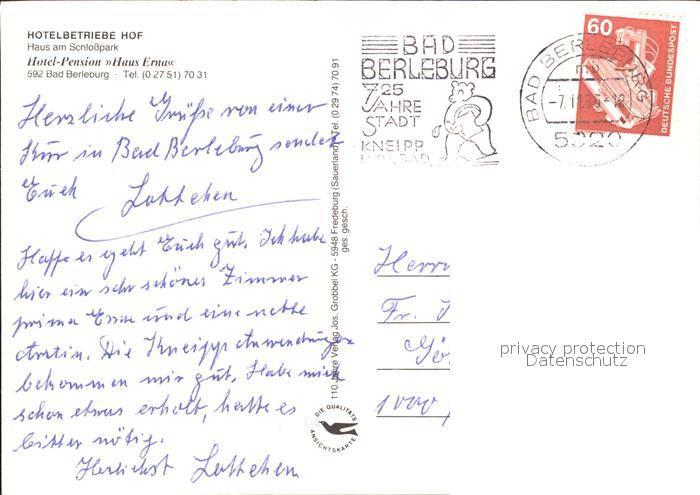 HOTELBETRIEBE HOF
Haus am Schloßpark
Hotel-Pension »Haus Erna«
592 Bad Berleburg · Tel. (0 27 51) 70 31
Herzliche Grüße von einer
Kur in Bad Berleburg sendet
Euch
Lottchen
Hoffe es geht Euch gut. Ich habe
hier ein sehr schönes Zimmer
prima Essen und eine nette
Ärztin. Die Kneippanwendungen
bekommen mir gut. Habe mich
schon etwas erholt, hatte es
bitter nötig.
Herzlichst Lottchen
110 Jahre Verlag Jos. Grobbel KG - 5948 Fredeburg (Sauerland) Tel. (0 29 74) 70 91
ges. gesch.
DIE QUALITÄTS
ANSICHTSKARTE
BAD
BERLEBURG
725
JAHRE
STADT
KNEIPP
BAD
BAD BERLEBURG
5920
60
DEUTSCHE BUNDESPOST
Herrn
Fr.
1000
privacy protection
Datenschutz